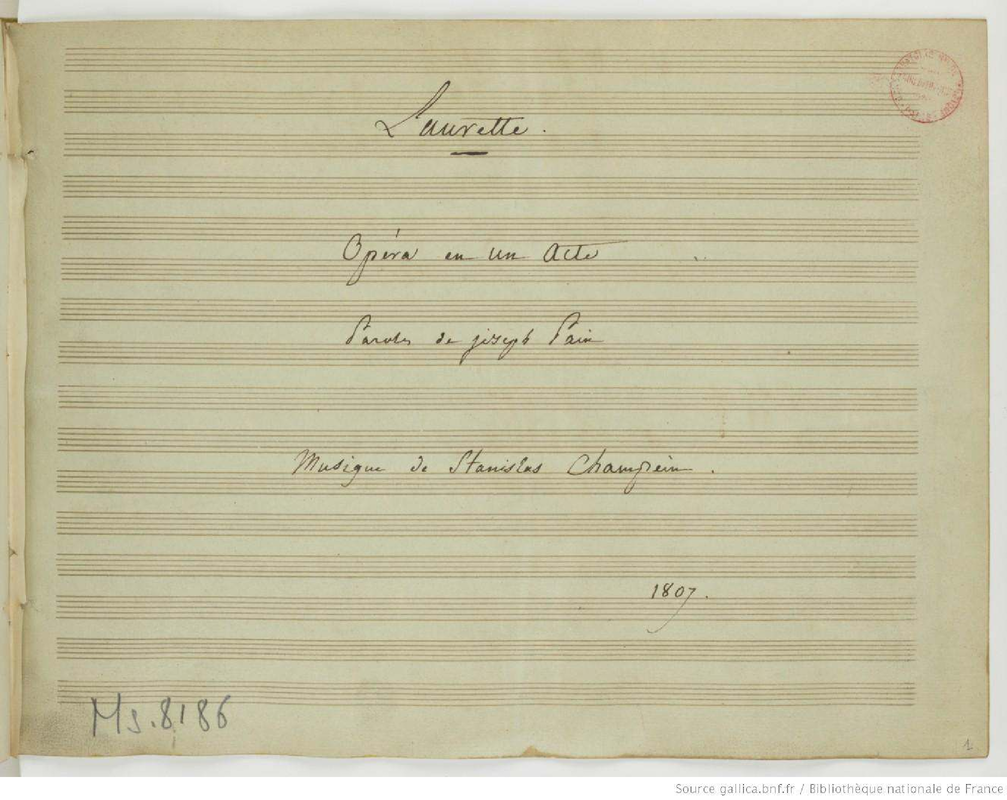 Laurette.
Opéra en un Acte
Paroles de joseph Pain
Musique de Stanislas Champein.
1807.
Ms. 8186
1
Source gallica.bnf.fr / Bibliothèque nationale de France